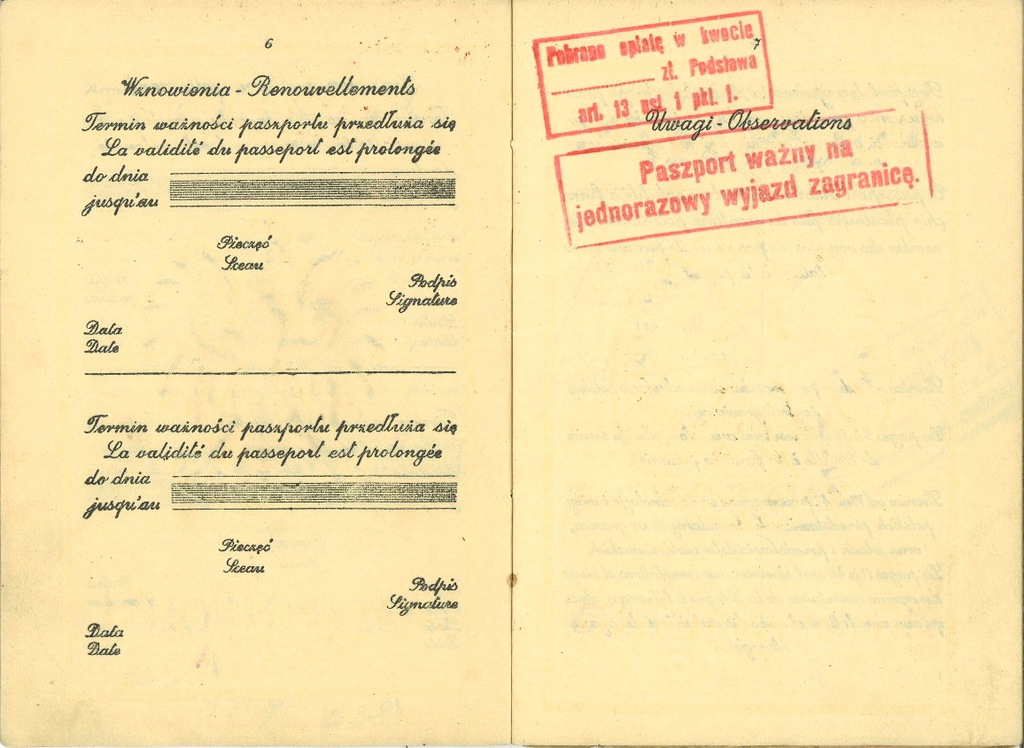 6
Wznowienia - Renouvellements
Termin ważności paszportu przedłuża się
La validité du passeport est prolongée
do dnia
jusqu'au
Pieczęć
Sceau
Podpis
Signature
Data
Date
Termin ważności paszportu przedłuża się
La validité du passeport est prolongée
do dnia
jusqu'au
Pieczęć
Sceau
Podpis
Signature
Data
Date
7
Pobrano opłatę w kwocie
zł. Podstawa
art. 13 ust. 1 pkt. 1.
Uwagi - Observations
Paszport ważny na
jednorazowy wyjazd zagranicę.